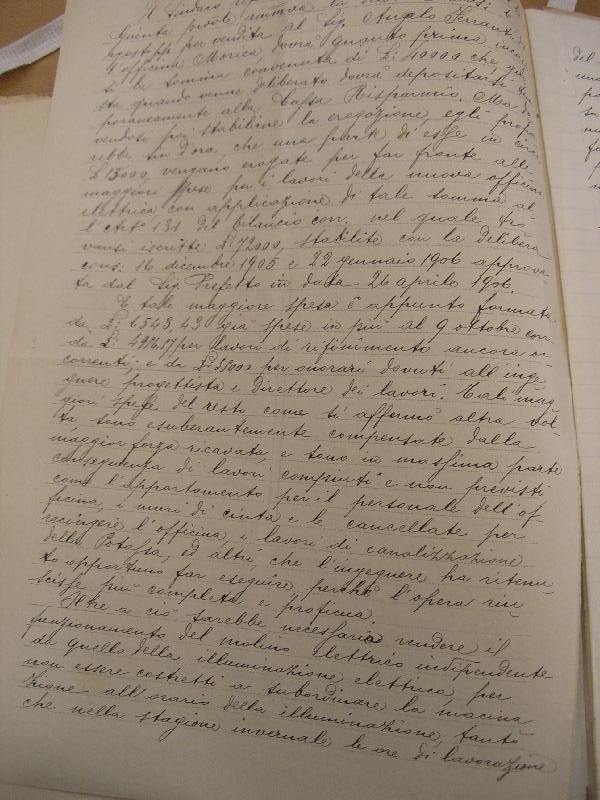 Il Sindaco
Giunta
per vendita al Sig. Angelo Ferrant
l'officina Morica, dovrà quanto prima
la somma convenuta di L. 40000 che
sta quando venne deliberato dovrà depositarsi
poraneamente alla Cassa Risparmio. Ma do
vendosi poi stabilire la erogazione, egli propor
rebbe fin d'ora, che una parte di esse in circa
L. 13000 vengano erogate per far fronte alle
maggiori spese per i lavori della nuova officina
elettrica con applicazione di tale somma al
l'Art. 131 del bilancio corr. nel quale tro
vansi iscritte L. 72000, stabilite con la Delibera
cons. 16 dicembre 1905 e 22 gennaio 1906 approva
ta dal Sig. Prefetto in data 26 aprile 1906.
E tale maggiore spesa è appunto formata
da L. 6543,43 già spese in più al 9 ottobre corr.
da L. per lavori di rifinimento ancora oc
correnti e da L. per onorari dovuti all'inge
gnere, progettista e direttore dei lavori. Tali mag
giori spese del resto come si affermò altra vol
ta sono esuberantemente compensate dalla
maggior forza ricavata, e sono in massima parte
conseguenza di lavori compiuti e non previsti
come l'appartamento per il personale dell'of
ficina, i muri di cinta e le cancellate per
recingere l'officina, i lavori di canalizzazione
della Potassa, ed altri, che l'ingegnere ha ritenu
to opportuno far eseguire, perchè l'opera riu
scisse più completa e proficua.
Oltre a ciò sarebbe necessario rendere il
funzionamento del molino elettrico indipendente
da quello della illuminazione elettrica, per
non essere costretti a subordinare la macina
zione all'orario della illuminazione, tanto
che nella stagione invernale le ore di lavorazione